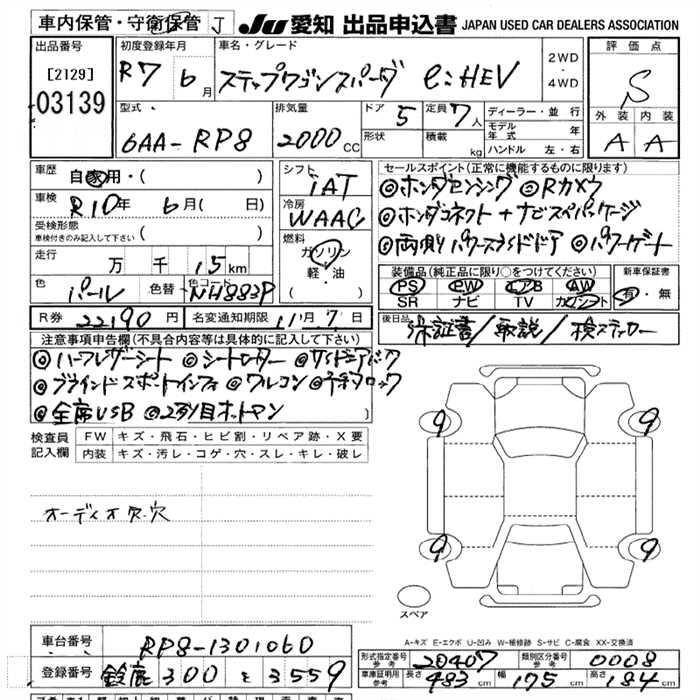 車内保管・守衛保管 J JU 愛知 出品申込書 JAPAN USED CAR DEALERS ASSOCIATION
出品番号 [2129] 03139
初度登録年月 R7 6月
車名・グレード ステップワゴンスパーダ e:HEV
2WD・4WD
評価点 S
外装 内装
A A
型式 6AA-RP8
排気量 2000CC
ドア 5 形状
定員 7人 積載 kg
ディーラー・並行
モデル年式 年
ハンドル 左・右
車歴 自家用・( )
車検 R10年 6月( 日)
受検形態 車検付きのみ記入して下さい ( )
走行 万 千 15km
色 パール 色替 色コード NH883P
シフト iAT
冷房 WAAC
燃料 ガソリン 軽・油 ( )
セールスポイント(正常に機能するものに限ります)
◎ホンダセンシング ◎Rカメラ
◎ホンダコネクト+ナビスペパッケージ
◎両側パワースライドドア ◎パワーゲート
装備品(純正品に限り○をつけてください)
PS PW エアB AW
SR ナビ TV
新車保証書 有・無
R券 22190円 名変通知期限 11月7日
後日品 保証書/取説/
注意事項申告欄(不具合内容等は具体的に記入して下さい)
◎ハーフレザーシート ◎シートヒーター ◎サイドエアバック
◎ブラインドスポットインフォ ◎ワルコン
◎全席USB ◎2列目オットマン )
検査員記入欄
FW キズ・飛石・ヒビ割・リペア跡・X要
内装 キズ・汚レ・コゲ・穴・スレ・キレ・破レ
オーディオ欠.穴
9 9
9 9
184
スペア
A-キズ E-エクボ U-凹み W-補修跡 S-サビ C-腐食 XX-交換済
車台番号 RP8-1301060
登録番号 鈴鹿 300 と 3559
形式指定番号 参考 20407 類別区分番号 参考 0008
車庫証明用 参考 長さ 483cm 幅 175cm 高さ 184cm